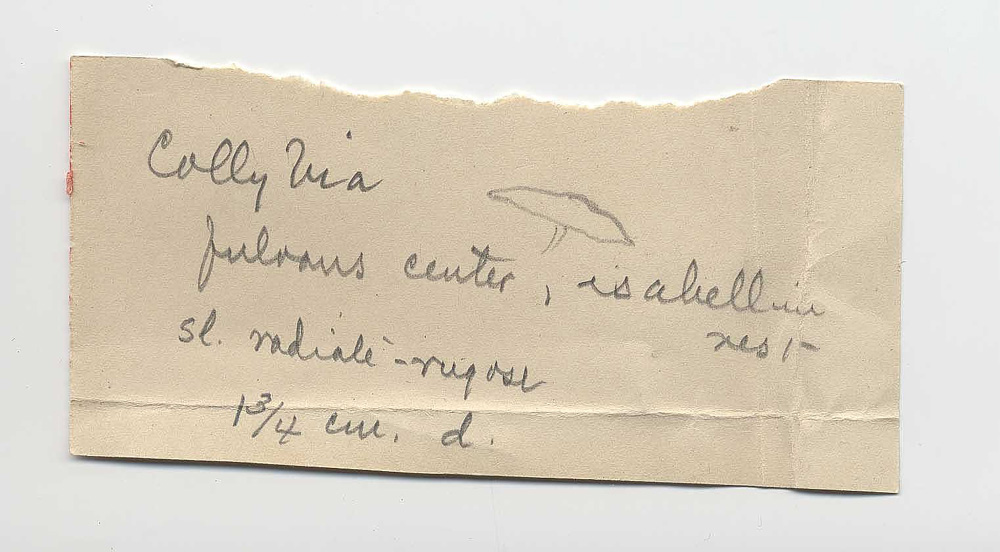 Collybia
fulvous center, isabellin
rest
sl. radiate-rugose
1 3/4 cm. d.